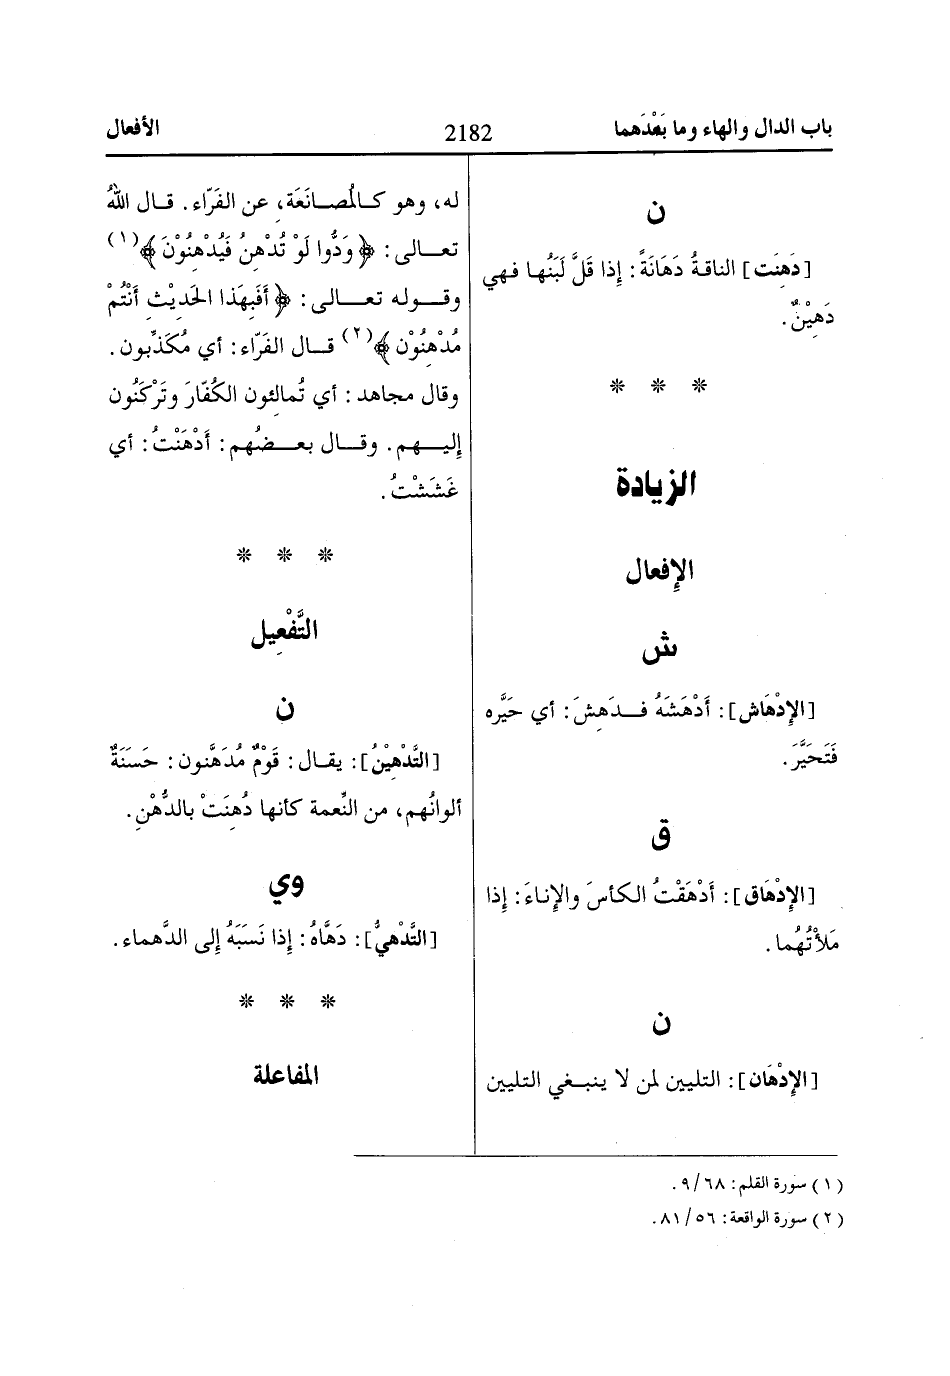 باب الدال والهاء وما بَعْدَهما 2182 الأفعال
ن
[دَهنَت] الناقةُ دَهَانَةً: إِذا قَلَّ لَبَنُها فهي
دَهِيْنٌ.
* * *
الزيادة
الإِفعال
ش
[الإِدْهَاش]: أَدْهَشَهُ فـدَهِشَ: أي حَيَّره
فَتَحَيَّرَ.
ق
[الإِدْهَاق]: أَدْهَقْتُ الكأسَ والإِناءَ: إِذا
مَلأْتُهُما.
ن
[الإِدْهَان]: التليين لمن لا ينبغي التليين
له، وهو كالمُصانَعَة، عن الفَرّاء. قال اللهُ
تعالى: ﴿وَدُّوا لَوْ تُدْهِنُ فَيُدْهِنُوْنَ﴾(١)
وقوله تعالى: ﴿أَفَبِهَذا الحَدِيْثِ أَنْتُمْ
مُدْهِنُوْن﴾(٢) قال الفَرّاء: أي مُكَذِّبون.
وقال مجاهد: أي تُمالئون الكُفّارَ وتَرْكَنُون
إِليهم. وقال بعضُهم: أَدْهَنْتُ: أي
غَشَشْتُ.
* * *
التَّفْعِيل
ن
[التَّدْهِيْنُ]: يقال: قَوْمٌ مُدَهَّنون: حَسَنَةٌ
ألوانُهم، من النِّعمة كأنها دُهِنَتْ بالدُّهْنِ.
وي
[التَّدْهيُّ]: دَهَّاهُ: إِذا نَسَبَهُ إِلى الدَّهماء.
* * *
المفاعلة
(١) سورة القلم: ٩/٦٨.
(٢) سورة الواقعة: ٨١/٥٦.